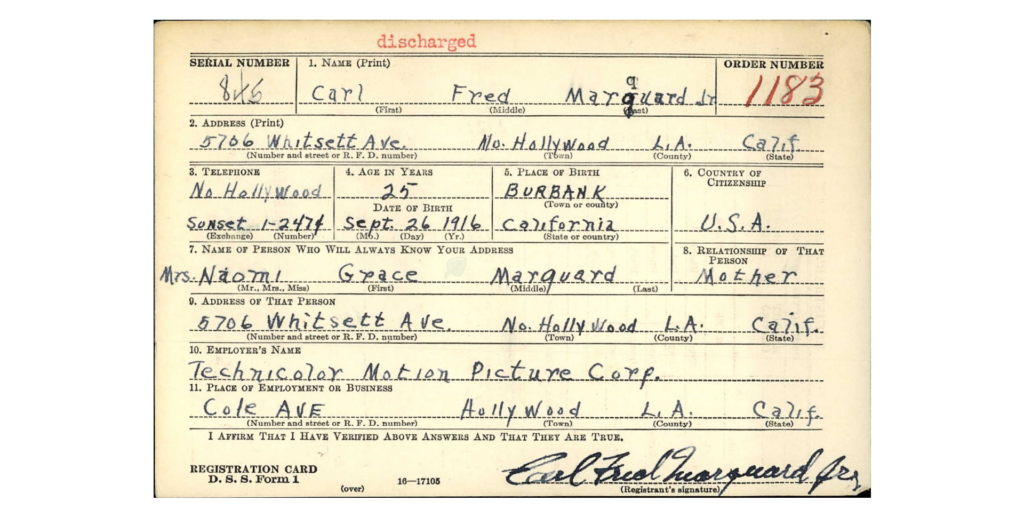 discharged
SERIAL NUMBER 1. NAME (Print) ORDER NUMBER
845 Carl Fred Marquard Jr 1183
(First) (Middle) (Last)
2. ADDRESS (Print)
5706 Whitsett Ave. No. Hollywood L.A. Calif.
(Number and street or R. F. D. number) (Town) (County) (State)
3. TELEPHONE 4. AGE IN YEARS 5. PLACE OF BIRTH 6. COUNTRY OF CITIZENSHIP
No Hollywood 25 BURBANK
DATE OF BIRTH (Town or county)
Sunset 1-2474 Sept. 26 1916 California U.S.A.
(Exchange) (Number) (Mo.) (Day) (Yr.) (State or country)
7. NAME OF PERSON WHO WILL ALWAYS KNOW YOUR ADDRESS 8. RELATIONSHIP OF THAT PERSON
Mrs. Naomi Grace Marquard Mother
(Mr., Mrs., Miss) (First) (Middle) (Last)
9. ADDRESS OF THAT PERSON
5706 Whitsett Ave. No. Hollywood L.A. Calif.
(Number and street or R. F. D. number) (Town) (County) (State)
10. EMPLOYER'S NAME
Technicolor Motion Picture Corp.
11. PLACE OF EMPLOYMENT OR BUSINESS
Cole AVE Hollywood L.A. Calif.
(Number and street or R. F. D. number) (Town) (County) (State)
I AFFIRM THAT I HAVE VERIFIED ABOVE ANSWERS AND THAT THEY ARE TRUE.
REGISTRATION CARD
D. S. S. Form 1 (over) 16—17105 Carl Fred Marquard Jr.
(Registrant's signature)